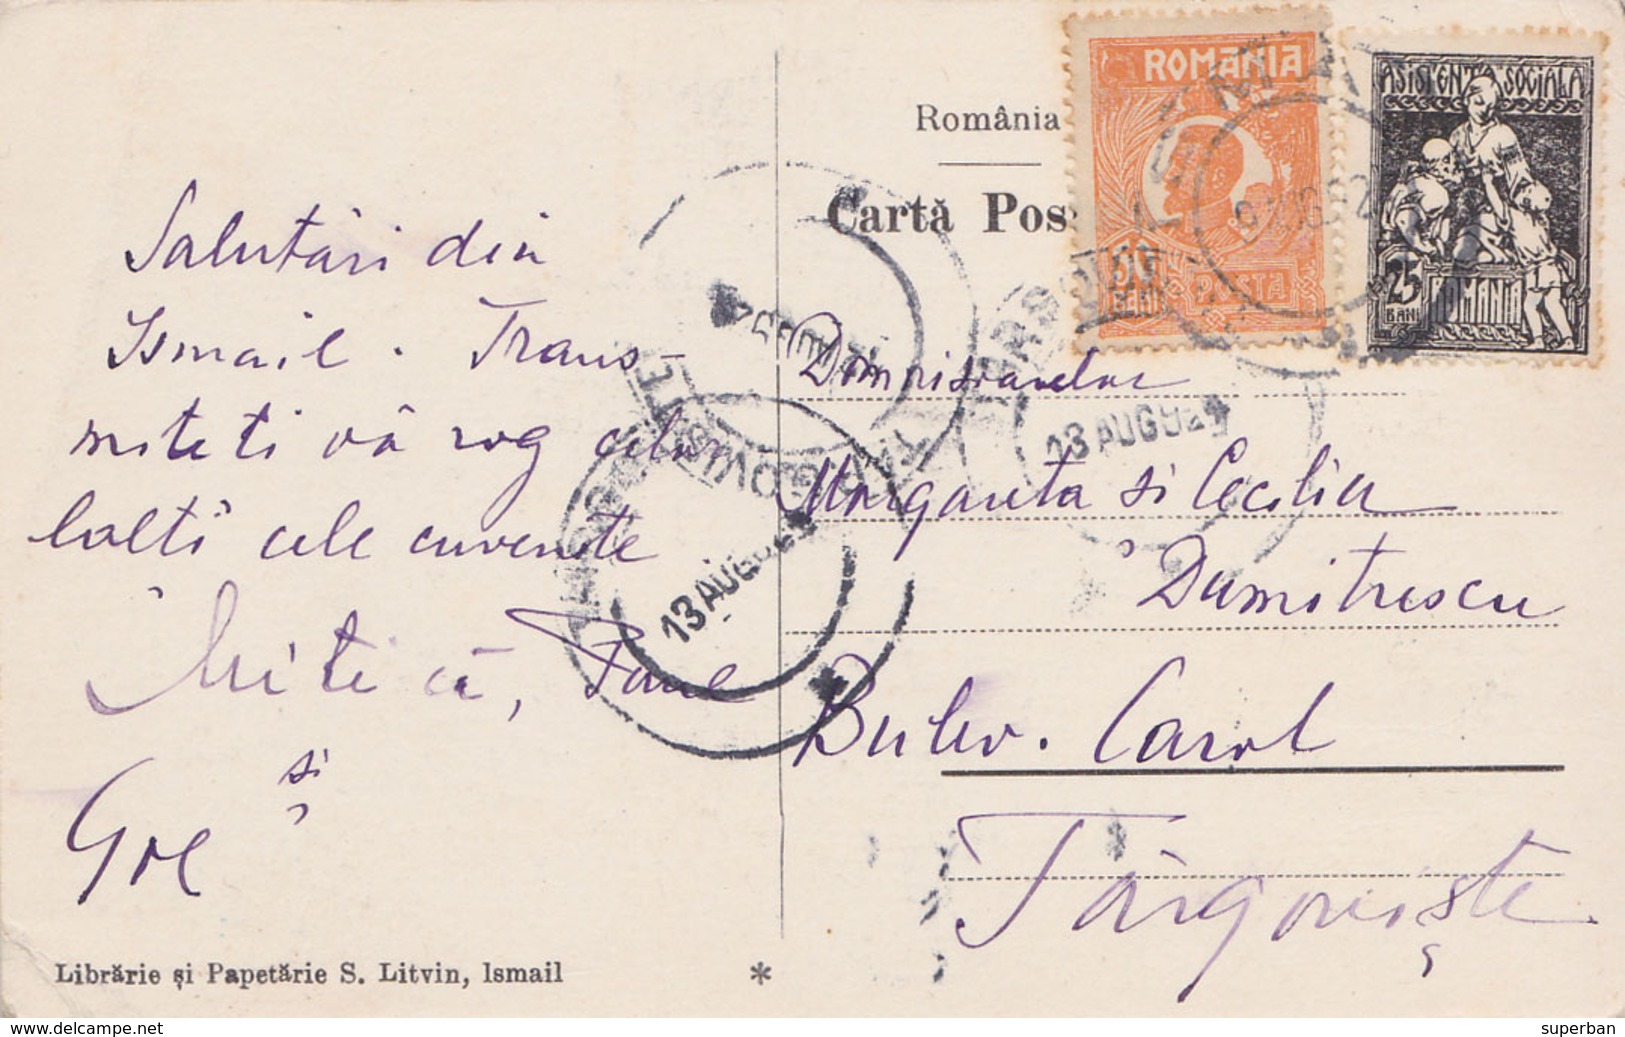 România
Cartă Pos
ROMANIA
BANI
POSTA
ASISTENTA SOCIALA
25
BANI
ROMANIA
Salutări din
Ismail. Trans-
miteti vă rog celor-
lalti cele cuvenite
Mitică,
si
Domnisoarelor
Margareta si Cecilia
Dumitrescu
Bulev. Carol
Târgoviște
13 AUG
13 AUG
Librărie și Papetărie S. Litvin, Ismail
*
www.delcampe.net
superban